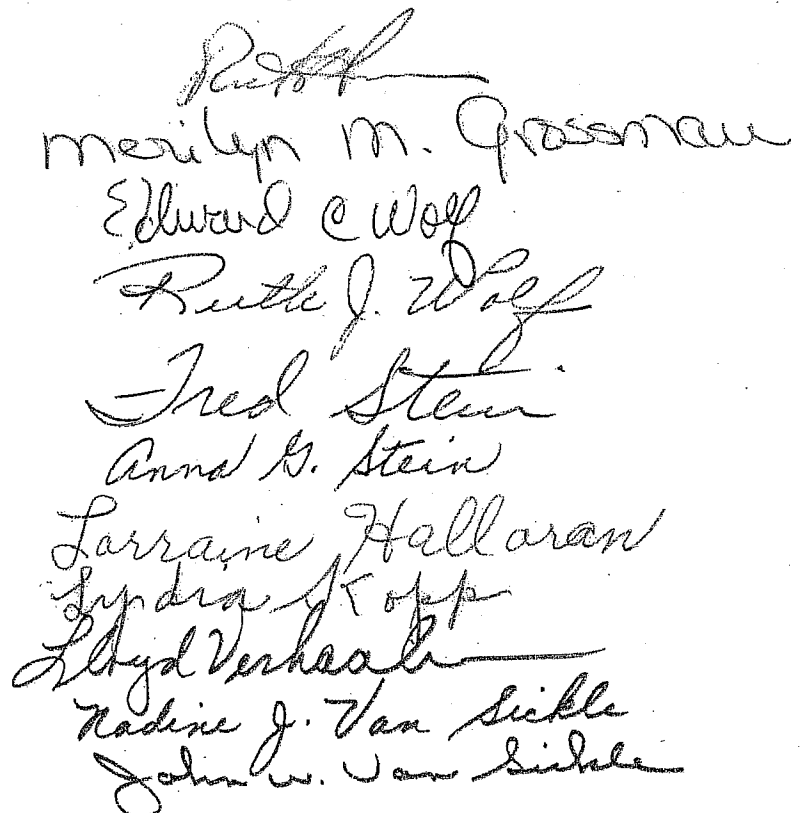 Merilyn M. Grossman
Edward C Wolf
Ruth J. Wolf
Fred Stein
Anna G. Stein
Lorraine Halloran
Lyndia Kopp
Lloyd Verhaalen
Nadine J. Van Sickle
John W. Van Sickle